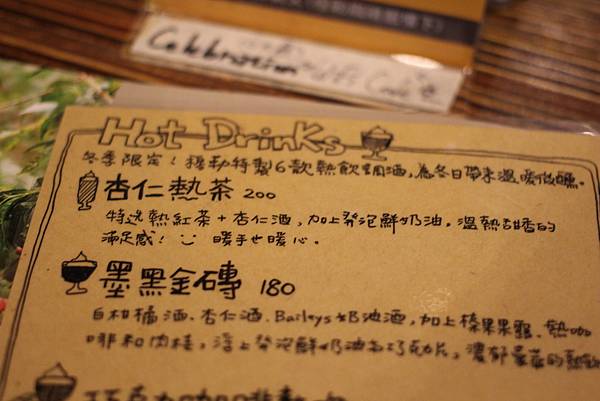 Celebration
Hot Drinks
冬季限定！穆勒特製6款熱飲調酒，為冬日帶來溫暖微醺。
杏仁熱茶 200
特選熱紅茶+杏仁酒，加上發泡鮮奶油。溫熱甜香的
滿足感！ 暖手也暖心。
墨黑金磚 180
白柑橘酒、杏仁酒、Baileys奶油酒，加上榛果果露、熱咖
啡和肉桂，浮上發泡鮮奶油和巧克力片，濃郁豪華的熱飲